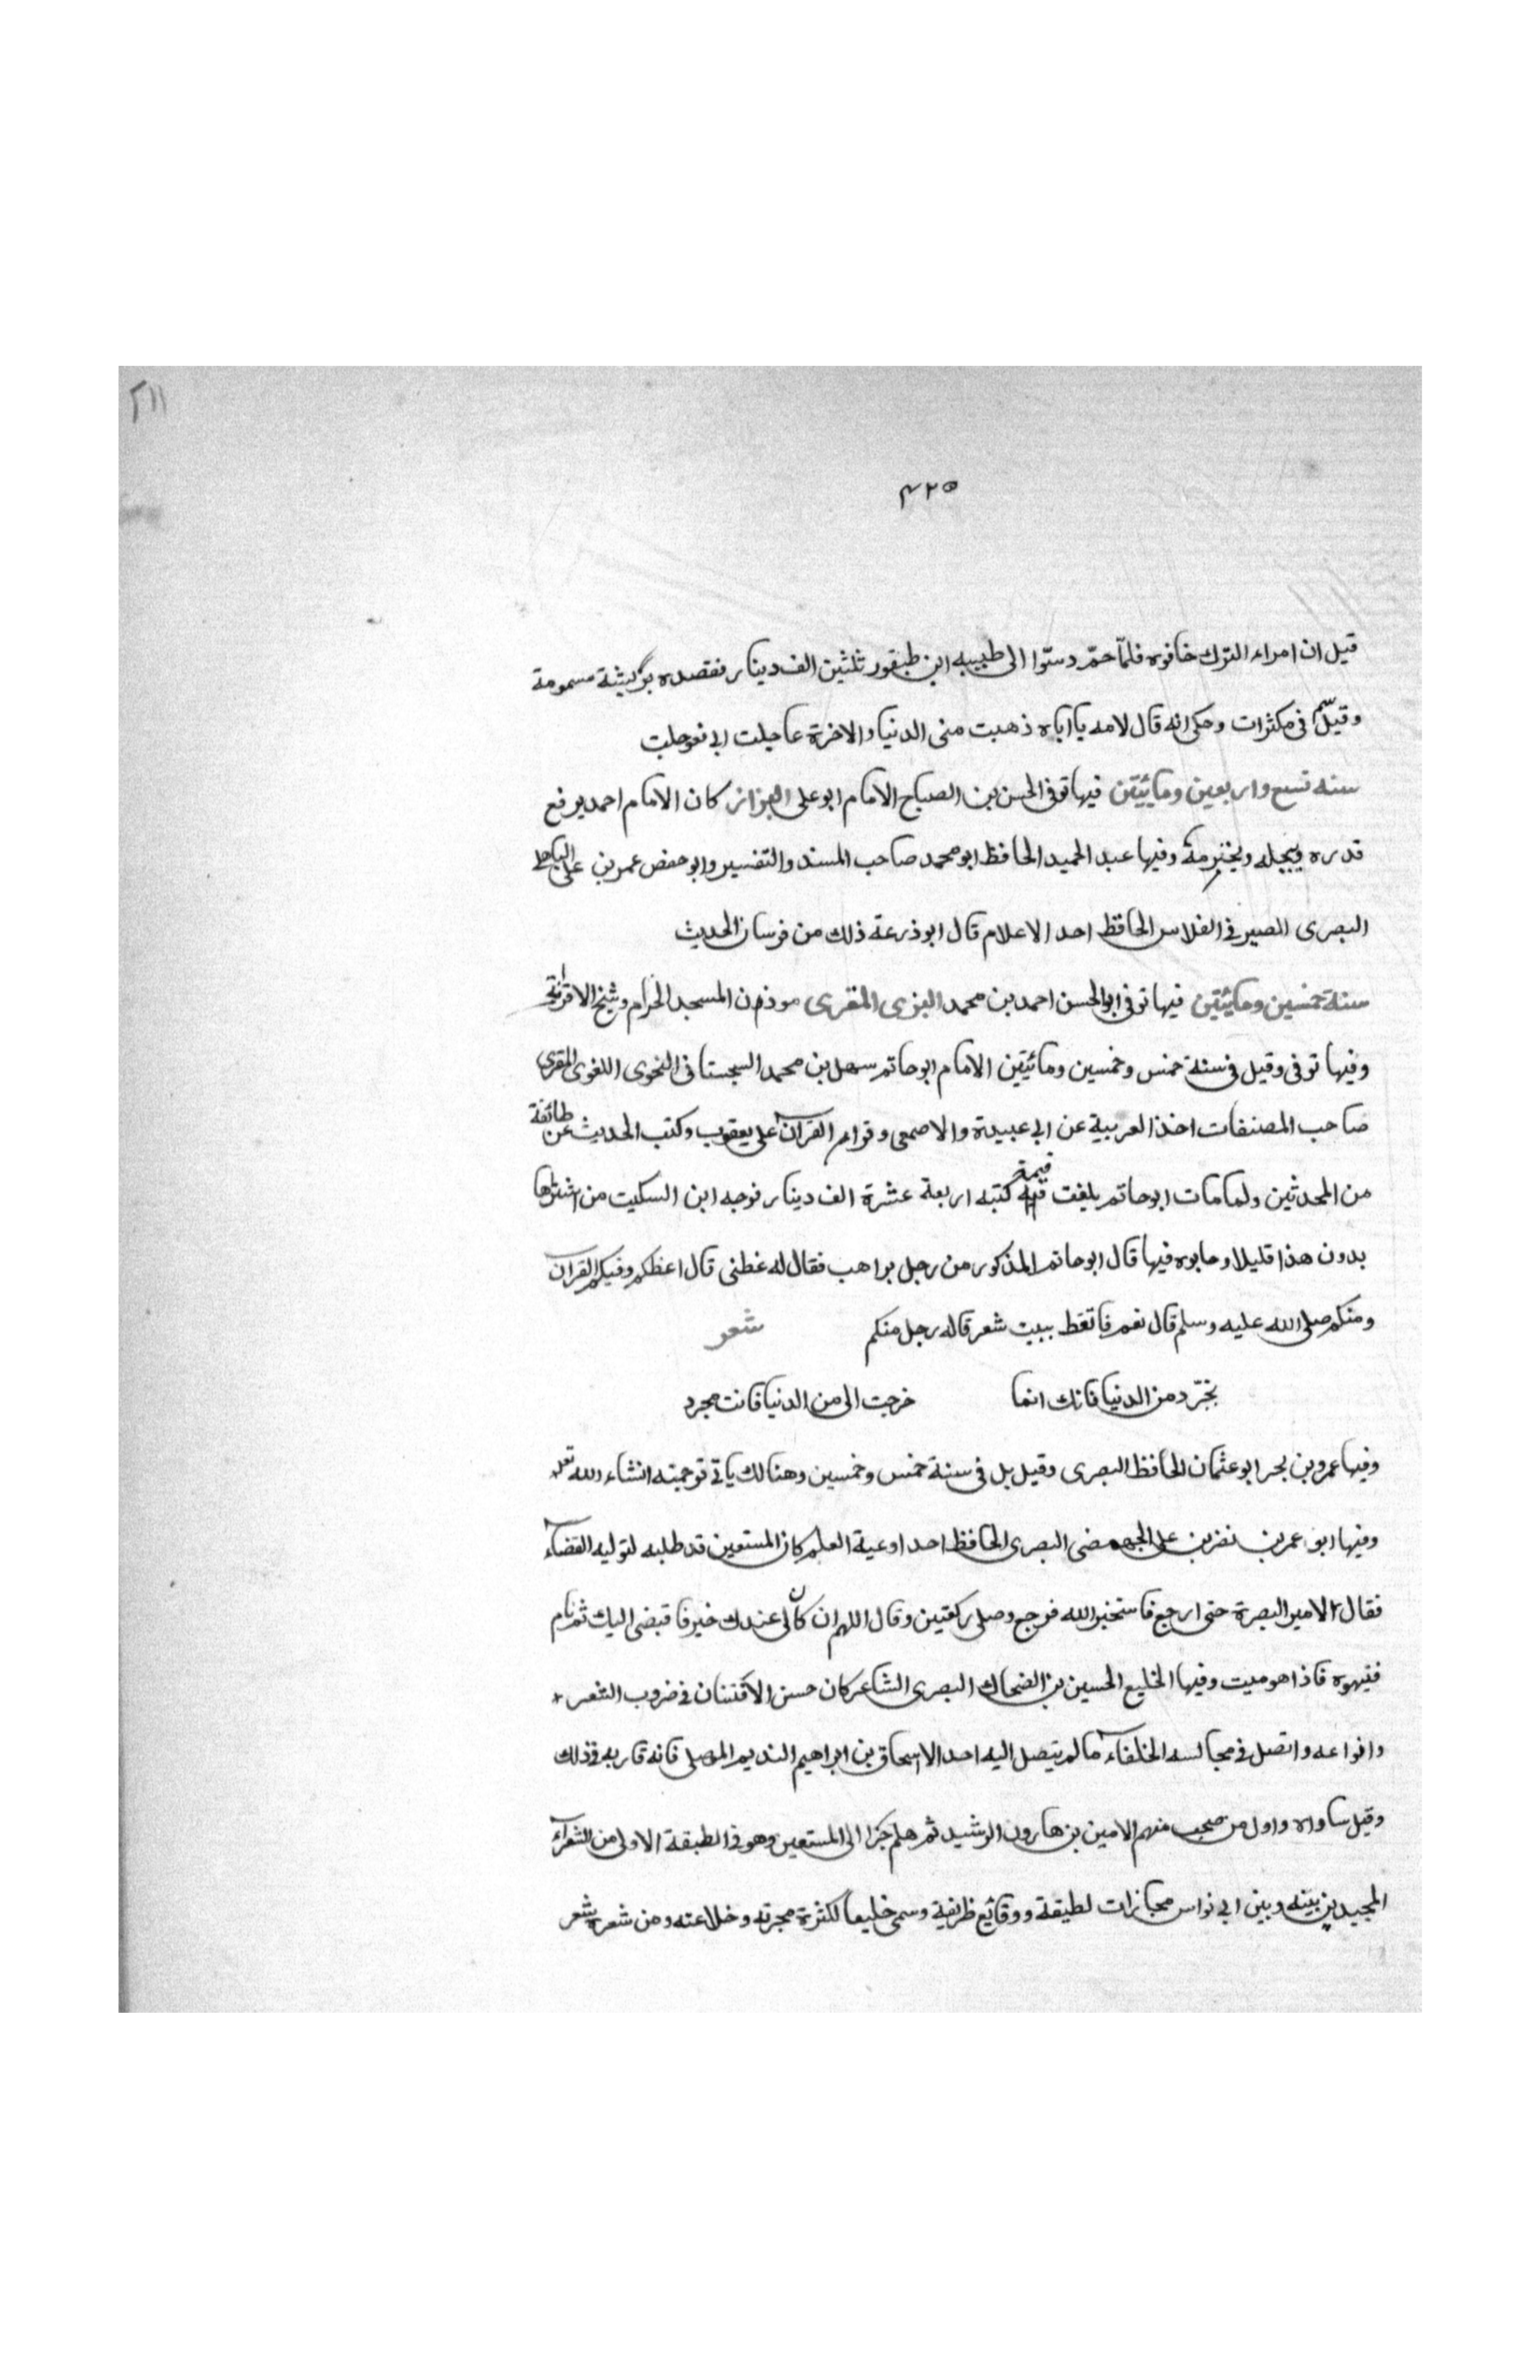 ٢١١
٤٢٥
قيل ان امراء الترك خافوه فلمّا حمّ دسّوا الى طبيبه ابن طيفور ثلثين الف دينار ففصده بريشة مسمومة
وقيل سّم فى مكثرات وحكى انه قال لامه يا اباه ذهبت منى الدنيا والاخرة عاجلت ابى فعوجلت
سنه تسع واربعين ومائيتين فيها توفى الحسن بن الصباح الامام ابو على البزاز كان الامام احمد يرفع
قدره ويجله ويحترمه وفيها عبد الحميد الحافظ ابو محمد صاحب المسند والتفسير وابو حفص عمر بن على الباهلى
البصرى الصيرفى الفلاس الحافظ احد الاعلام قال ابو ذرعة ذلك من فرسان الحديث
سنة خمسين ومائيتين فيها توفى ابو الحسن احمد بن محمد البزى المقرى موذن المسجد الحرام وشيخ الاقرائه
وفيها توفى وقيل فى سنة خمس وخمسين ومائيتين الامام ابو حاتم سهل بن محمد السجستانى النحوى اللغوى المقرى
صاحب المصنفات اخذ العربية عن ابى عبيدة والاصمعى وقراء القرآن على يعقوب وكتب الحديث عن طائفة
من المحدثين ولما مات ابو حاتم بلغت قيمة كتبه اربعة عشرة الف دينار فوجه ابن السكيت من اشتراها
بدون هذا قليلا وحابوه فيها قال ابو حاتم المذكور من رجل براهب فقال له عظنى قال اعظكم وفيكم القرآن
ومنكم صلى الله عليه وسلم قال نعم فاتعظ ببيت شعر قاله رجل منكم شعر
تجرّد من الدنيا فانك انما خرجت الى من الدنيا فانت مجرد
وفيها عمرو بن بحر ابو عثمان الحافظ البصرى وقيل بل فى سنة خمس وخمسين وهنالك ياتى ترجمته انشاء الله تعلى
وفيها ابو عمر بن نضر بن على الجهمضى البصرى الحافظ احد اوعية العلم كان المستعين قد طلبه لتوليه القضاء
فقال الامير البصرة حتى ارجع فاستخير الله فرجع وصلى ركعتين وقال اللهم ان كان لى عندك خير فاقبضى اليك ثم نام
فنبهوه فاذا هو ميت وفيها الخليع الحسين بن الضحاك البصرى الشاعر كان حسن الافتنان فى ضروب الشعر
وانواعه واتصل فى مجالسه الخلفاء ما لم يتصل اليه احد الا اسحاق بن ابراهيم النديم الموصلى فانه قاربه فى ذلك
وقيل ساواه واول من صحب منهم الامين بن هارون الرشيد ثم هلم جرا الى المستعين وهو فى الطبقة الاولى من الشعراء
المجيدين بينه وبين ابى نواس مجازات لطيفة ووقائع ظريفية وسمى خليعا لكثرة مجرته وخلاعته ومن شعره شعر